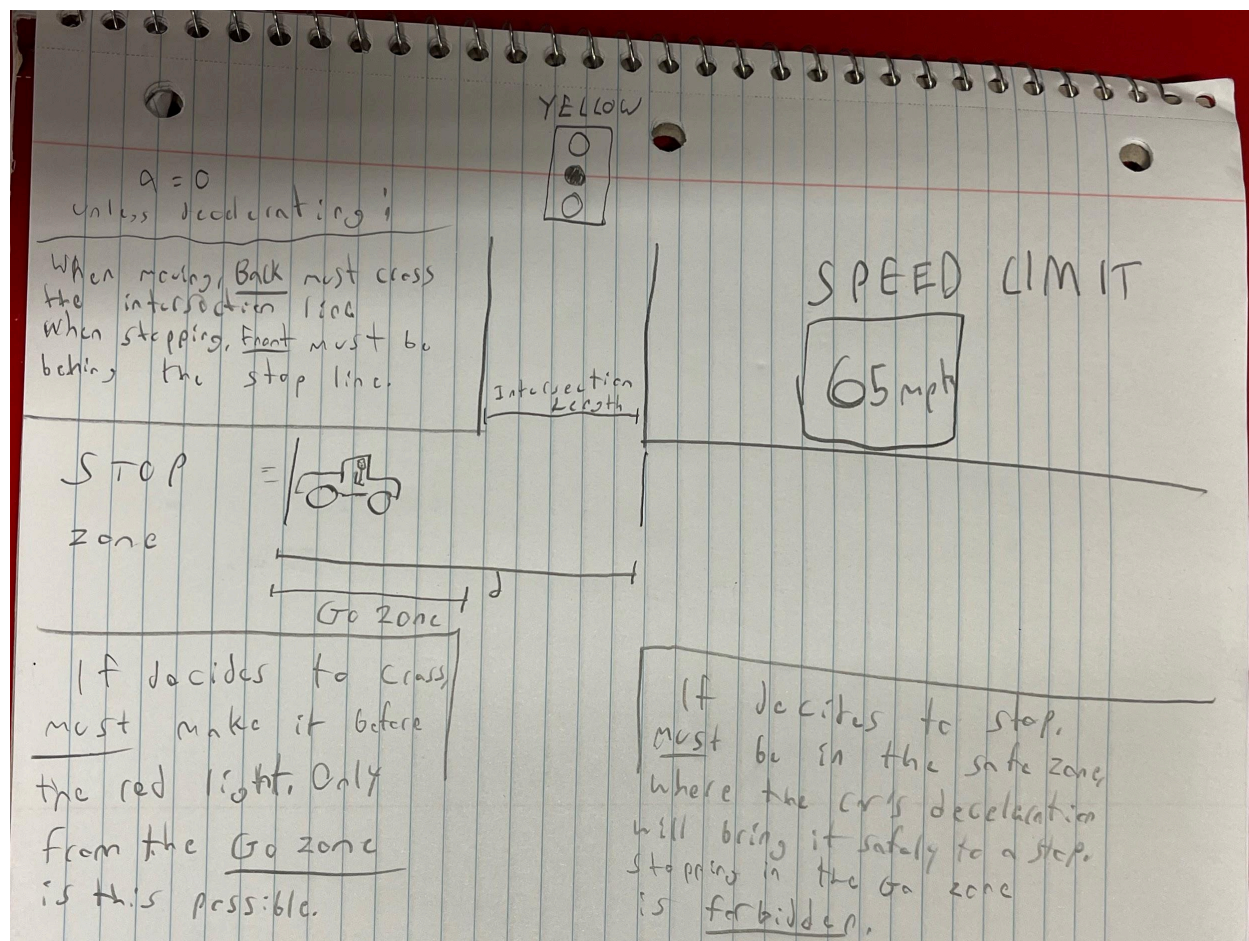 YELLOW
a = 0
unless decelerating;
When moving, Back must cross
the intersection line
When stopping, Front must be
behind the stop line.
Intersection
Length
SPEED LIMIT
65 mph
STOP =
zone
d
Go zone
If decides to cross,
must make it before
the red light. Only
from the Go zone
is this possible.
If decides to stop,
must be in the safe zone,
where the car's deceleration
will bring it safely to a stop.
stopping in the Go zone
is forbidden.